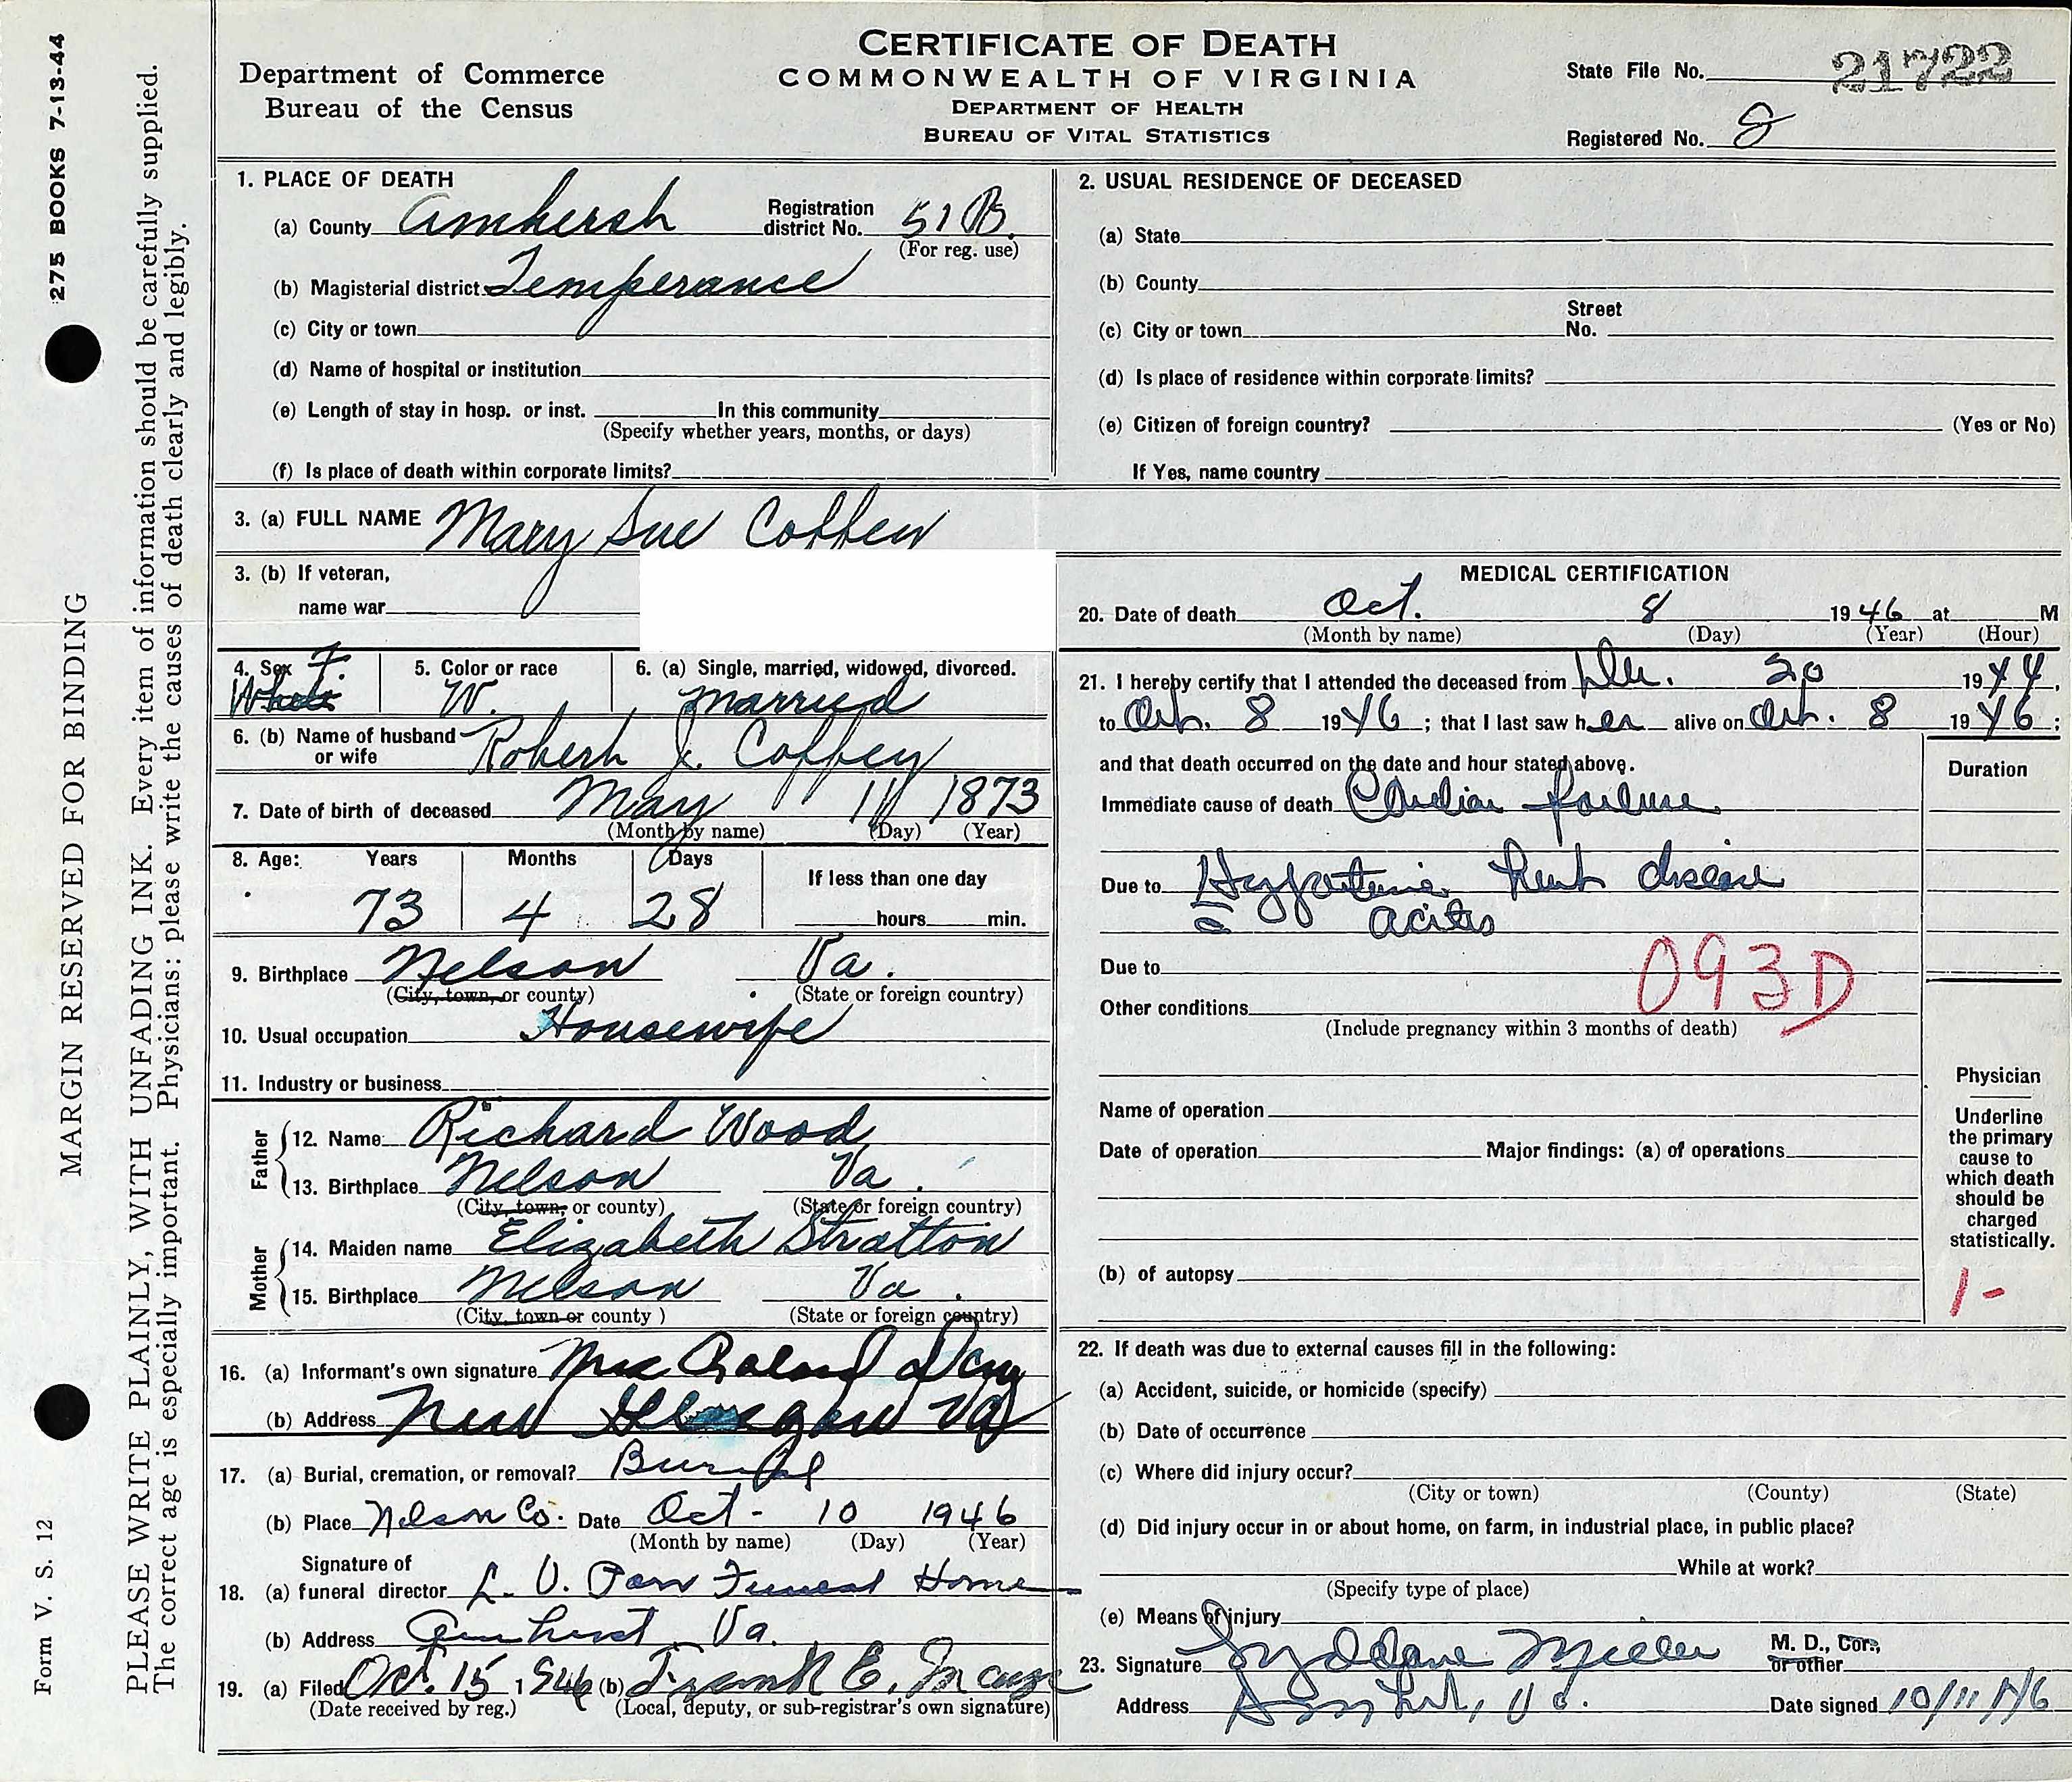 275 BOOKS 7-13-44
MARGIN RESERVED FOR BINDING
Form V. S. 12
PLEASE WRITE PLAINLY, WITH UNFADING INK. Every item of information should be carefully supplied.
The correct age is especially important. Physicians: please write the causes of death clearly and legibly.
Department of Commerce
Bureau of the Census
CERTIFICATE OF DEATH
COMMONWEALTH OF VIRGINIA
DEPARTMENT OF HEALTH
BUREAU OF VITAL STATISTICS
State File No. 21722
Registered No. 8
1. PLACE OF DEATH
(a) County Amherst Registration district No. 51B
(For reg. use)
(b) Magisterial district Temperance
(c) City or town
(d) Name of hospital or institution
(e) Length of stay in hosp. or inst. In this community
(Specify whether years, months, or days)
(f) Is place of death within corporate limits?
2. USUAL RESIDENCE OF DECEASED
(a) State
(b) County
(c) City or town Street No.
(d) Is place of residence within corporate limits?
(e) Citizen of foreign country? (Yes or No)
If Yes, name country
3. (a) FULL NAME Mary Sue Coffey
3. (b) If veteran,
name war
4. Sex F
White
5. Color or race
W.
6. (a) Single, married, widowed, divorced.
married
6. (b) Name of husband or wife Robert J. Coffey
7. Date of birth of deceased May 11 1873
(Month by name) (Day) (Year)
8. Age: Years Months Days If less than one day
73 4 28 hours min.
9. Birthplace Nelson Va.
(City, town, or county) (State or foreign country)
10. Usual occupation Housewife
11. Industry or business
Father
12. Name Richard Wood
13. Birthplace Nelson Va.
(City, town, or county) (State or foreign country)
Mother
14. Maiden name Elizabeth Stratton
15. Birthplace Nelson Va.
(City, town or county ) (State or foreign country)
16. (a) Informant's own signature Mrs Roland Day
(b) Address New Glasgow Va
17. (a) Burial, cremation, or removal? Burial
(b) Place Nelson Co. Date Oct - 10 1946
(Month by name) (Day) (Year)
18. Signature of
(a) funeral director L. V. Parr Funeral Home
(b) Address Amherst Va.
19. (a) Filed Oct. 15, 1946 (b) Frank E.
(Date received by reg.) (Local, deputy, or sub-registrar's own signature)
MEDICAL CERTIFICATION
20. Date of death Oct. 8 1946 at M
(Month by name) (Day) (Year) (Hour)
21. I hereby certify that I attended the deceased from 20 1944,
to Oct. 8 1946; that I last saw her alive on Oct. 8 1946;
and that death occurred on the date and hour stated above.
Duration
Immediate cause of death Cardiac failure
Due to Hypertensive heart disease
c acites
Due to
093D
Other conditions
(Include pregnancy within 3 months of death)
Name of operation
Date of operation Major findings: (a) of operations
(b) of autopsy
Physician
Underline
the primary
cause to
which death
should be
charged
statistically.
1-
22. If death was due to external causes fill in the following:
(a) Accident, suicide, or homicide (specify)
(b) Date of occurrence
(c) Where did injury occur?
(City or town) (County) (State)
(d) Did injury occur in or about home, on farm, in industrial place, in public place?
While at work?
(Specify type of place)
(e) Means of injury
23. Signature Miller M. D., Cor., or other
Address Amherst, Va. Date signed 10/11/46